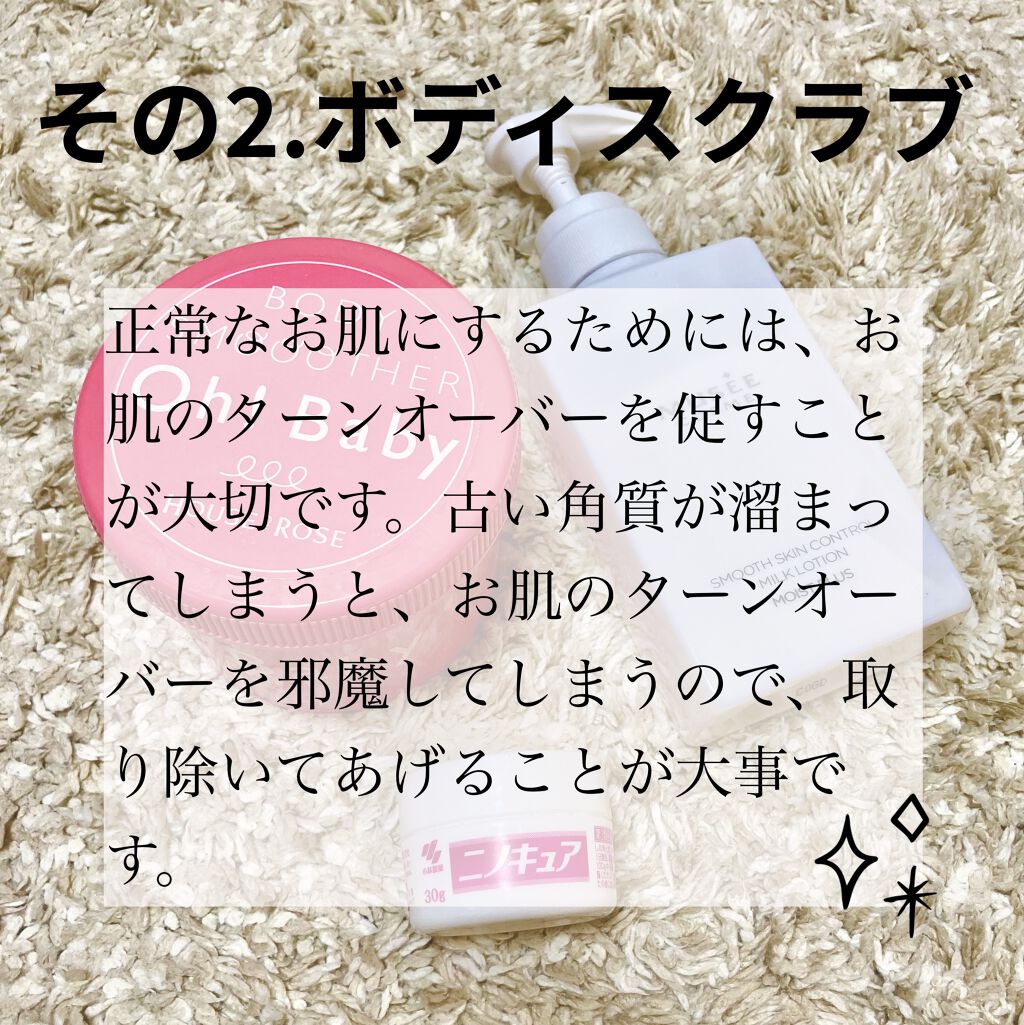 その2.ボディスクラブ
正常なお肌にするためには、お
肌のターンオーバーを促すこと
が大切です。古い角質が溜まっ
てしまうと、お肌のターンオー
バーを邪魔してしまうので、取
り除いてあげることが大事で
す。
BODY
SMOOTHER
Oh! Baby
HOUSE OF ROSE
SMOOTH SKIN CONTROL
MILK LOTION
MOIST PLUS
ニノキュア
30g